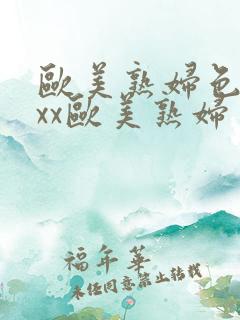 歐美熟婦色
xx歐美熟婦
福年華
未经同意禁止转载